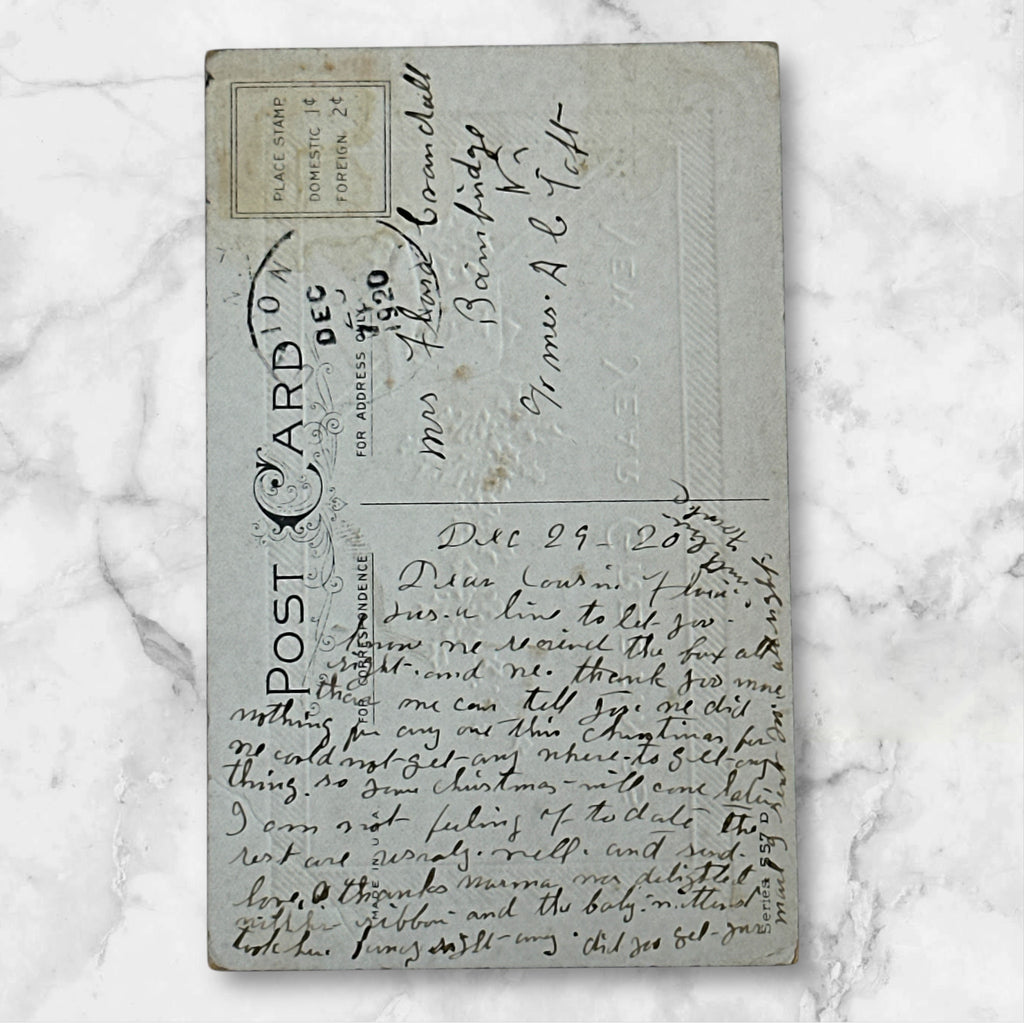 POST CARD
FOR CORRESPONDENCE
FOR ADDRESS ONLY
PLACE STAMP
DOMESTIC 1¢
FOREIGN 2¢
10
DEC
1920
Mrs Crandall
Bainbridge
N Y
Mrs. A C Taft
Dec 29 - 20
Dear Cousin
Jus a line to let you
know we recieved the box all
right. and we thank you more
than we can tell you we did
nothing for any one this Christmas for
we could not get any where to get any
thing so your Christmas will come later
I am not feeling up to date the
rest are usualy well. and send
love, & thanks Norma was delighted
with her ribbon and the baby mittens
took her fancy right away. did you get your
mail I sent you all right
MADE IN U.S.A
Series 557 D
NEW YEAR